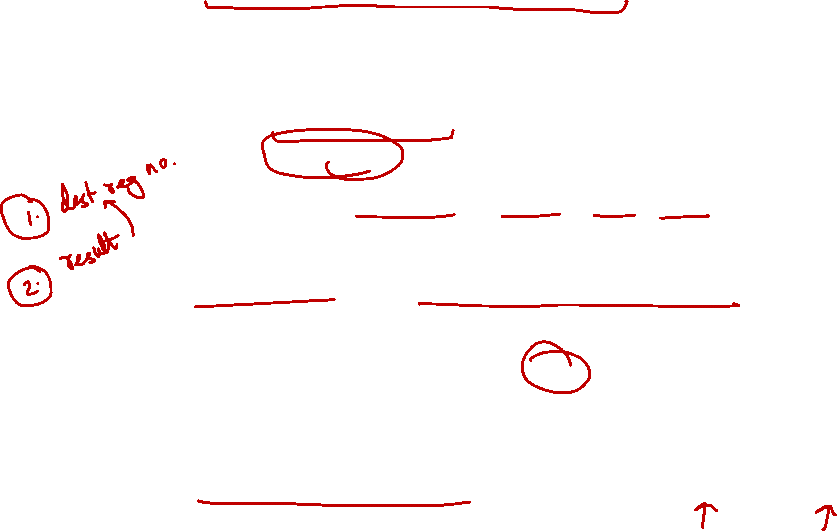 1. dest reg no.
2. result